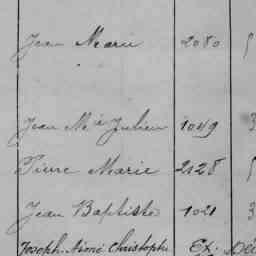 Jean Marie 2080
Jean Mie Julien 1049 3
Pierre Marie 2128
Jean Baptiste 1021 3
Joseph Aimé Christophe Ex. Dé